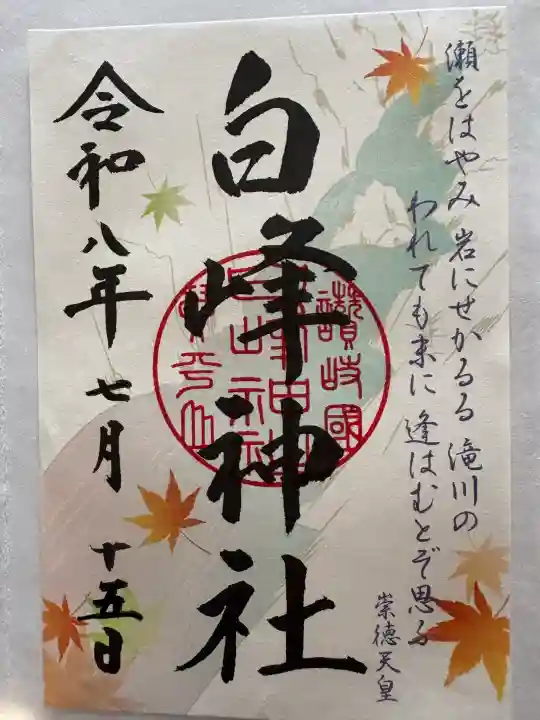 瀬をはやみ 岩にせかるる 滝川の
われても末に 逢はむとぞ思る
崇徳天皇
白峰神社
讃岐國
令和八年 七月 十五日